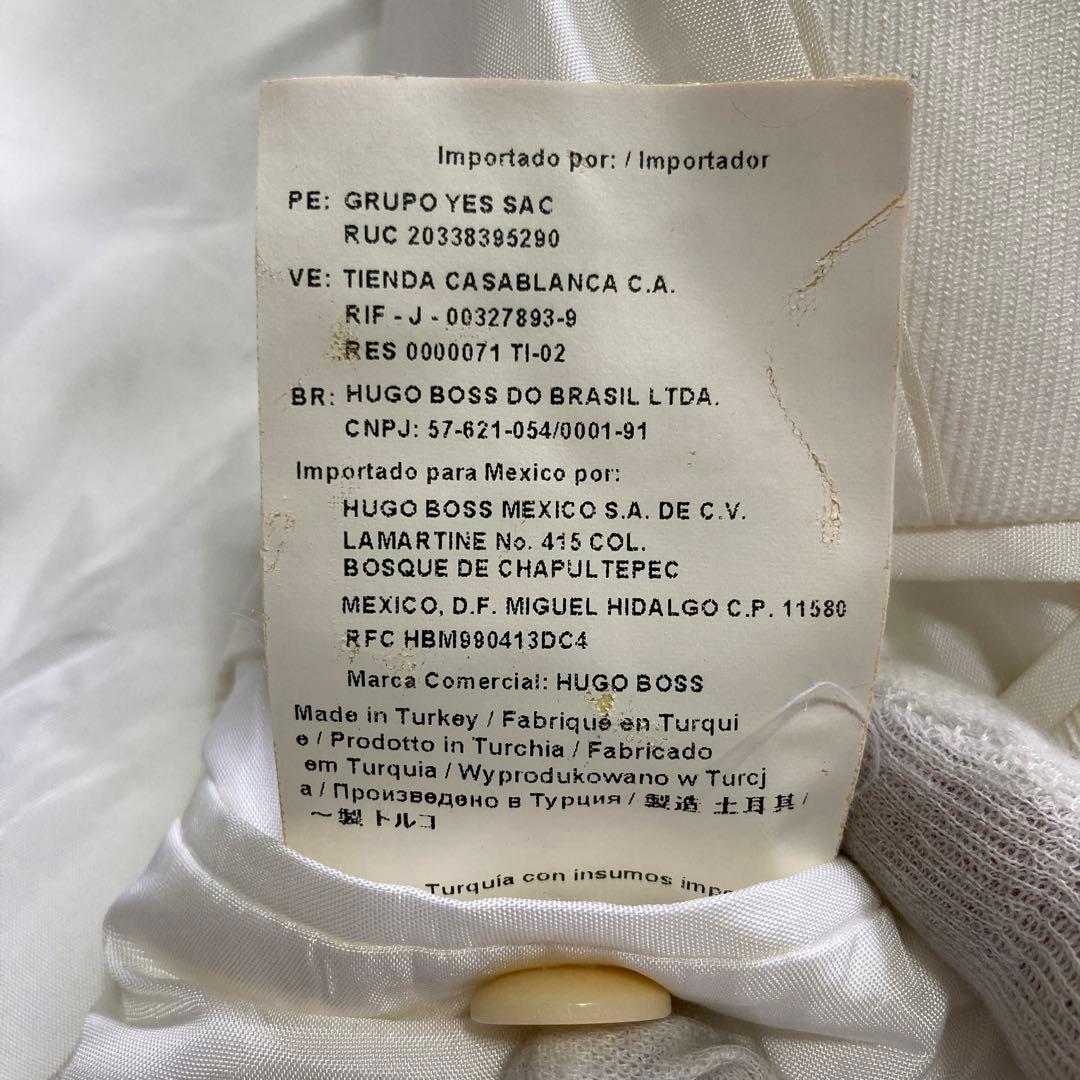 Importado por: / Importador
PE: GRUPO YES SAC
RUC 20338395290
VE: TIENDA CASABLANCA C.A.
RIF - J - 00327893-9
RES 0000071 TI-02
BR: HUGO BOSS DO BRASIL LTDA.
CNPJ: 57-621-054/0001-91
Importado para Mexico por:
HUGO BOSS MEXICO S.A. DE C.V.
LAMARTINE No. 415 COL.
BOSQUE DE CHAPULTEPEC
MEXICO, D.F. MIGUEL HIDALGO C.P. 11580
RFC HBM990413DC4
Marca Comercial: HUGO BOSS
Made in Turkey / Fabriqué en Turqui
e / Prodotto in Turchia / Fabricado
em Turquia / Wyprodukowano w Turcj
a / Произведено в Турция / 製造 土耳其 /
~製 トルコ
Turquía con insumos